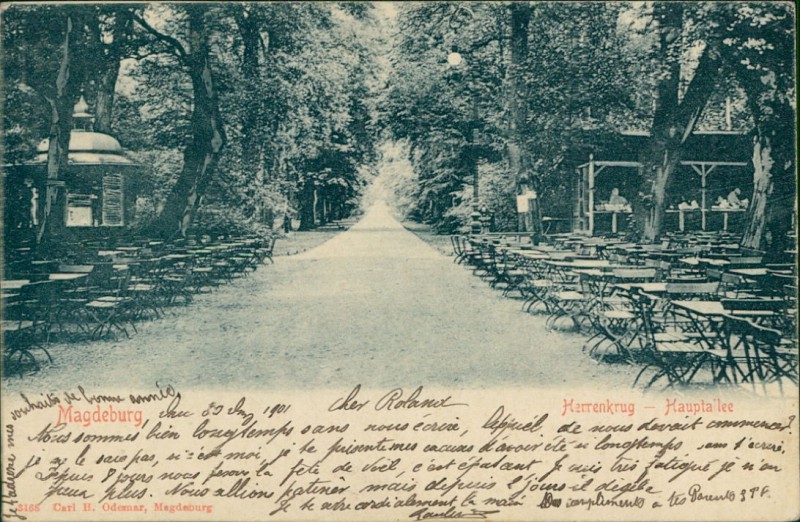 Magdeburg,
Herrenkrug – Hauptallee
1901 cher Roland
Nous sommes bien longtemps sans nous écrire, lequel de nous devait commencer?
je ne le sais pas, si c'est moi, je te présente mes excuses d'avoir été si longtemps sans t'écrire,
Depuis 8 jours nous fêtons la fête de Noël, c'est épatant je suis très fatigué je n'en
peux plus. Nous allions patiner mais depuis 2 jours il dégèle
Je te serre cordialement la main compliments à tes Parents
je t'adresse mes souhaits de bonne année
Carl H. Odemar, Magdeburg